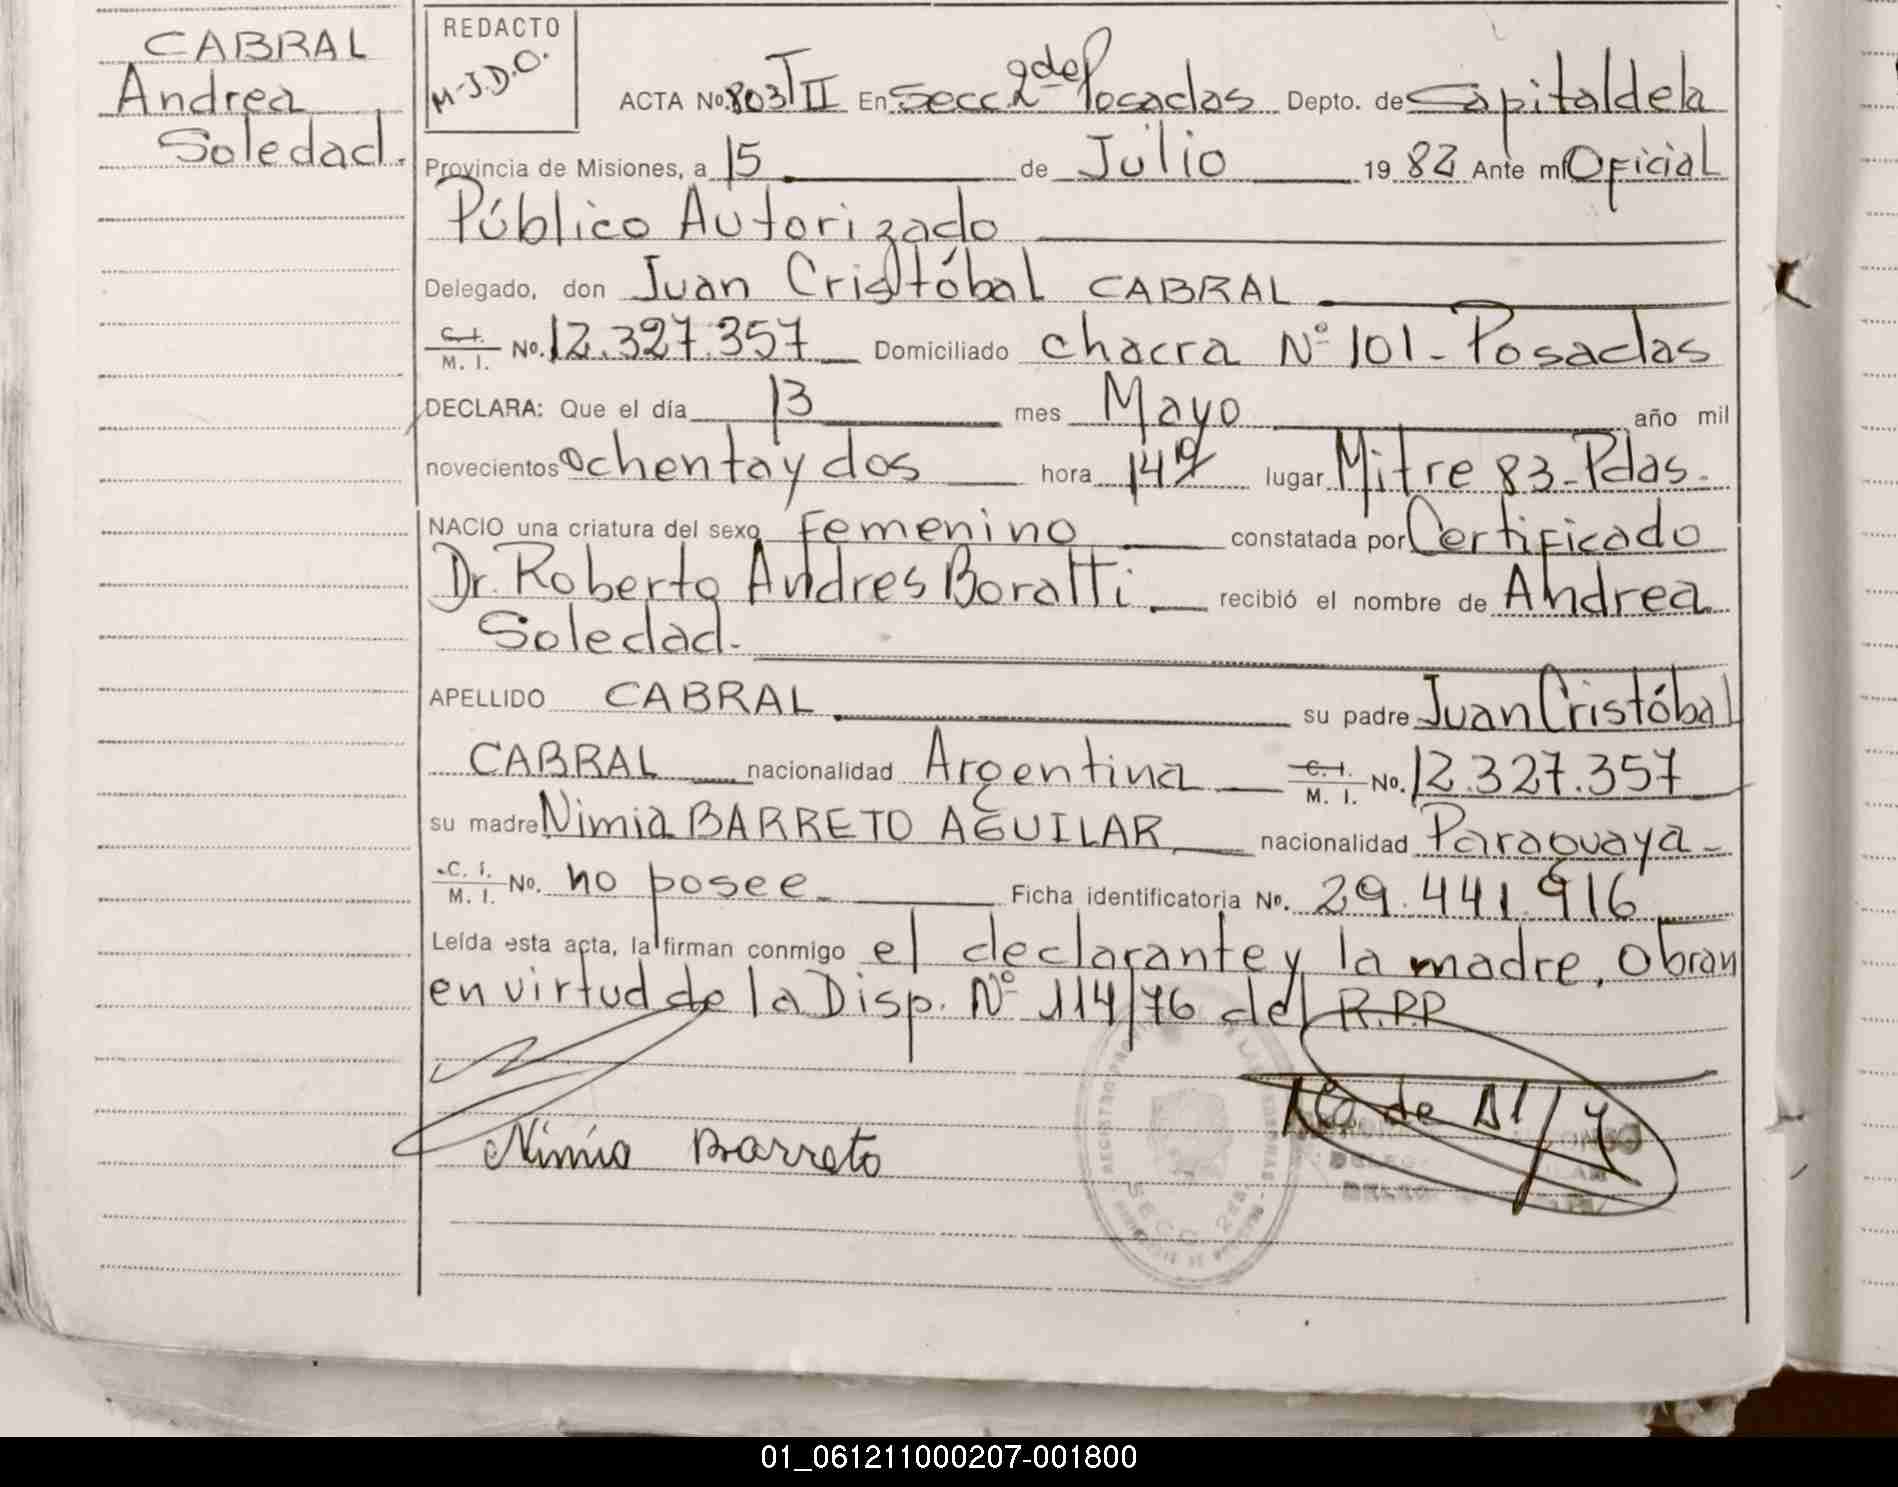 CABRAL
Andrea
Soledad.
REDACTO
M-J.D.O.
ACTA No. 803 T II En Secc 2ª de Posadas Depto. de Capital de la
Provincia de Misiones, a 15 de Julio 1982 Ante mí Oficial
Público Autorizado
Delegado, don Juan Cristóbal CABRAL
C. I. M. I. No. 12.327.357 Domiciliado chacra Nº 101 - Posadas
DECLARA: Que el día 13 mes Mayo año mil
novecientos ochenta y dos hora 14 lugar Mitre 83 - Pdas.
NACIO una criatura del sexo femenino constatada por Certificado
Dr. Roberto Andres Boratti recibió el nombre de Andrea
Soledad.
APELLIDO CABRAL su padre Juan Cristóbal
CABRAL nacionalidad Argentina C. I. M. I. No. 12.327.357
su madre Nimia BARRETO AGUILAR nacionalidad Paraguaya -
C. I. M. I. No. no posee Ficha identificatoria No. 29.441.916
Leída esta acta, la firman conmigo el declarante y la madre. Obran
en virtud de la Disp. Nº 114/76 del R.P.P
Nimia Barreto
SECC. 2da.
01_061211000207-001800